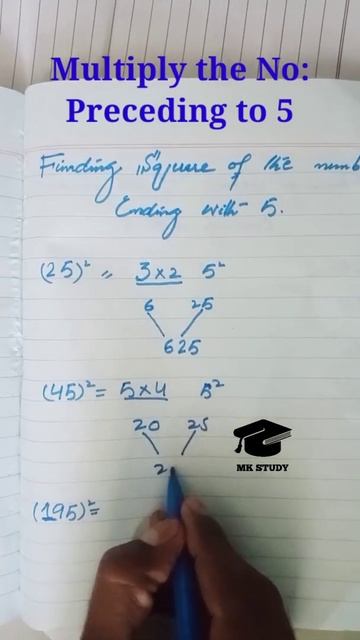 Multiply the No:
Preceding to 5
Finding Square of the numb
Ending with 5.
(25)² = 3×2 5²
6 25
625
(45)² = 5×4 5²
20 25
2
MK STUDY
(195)² =